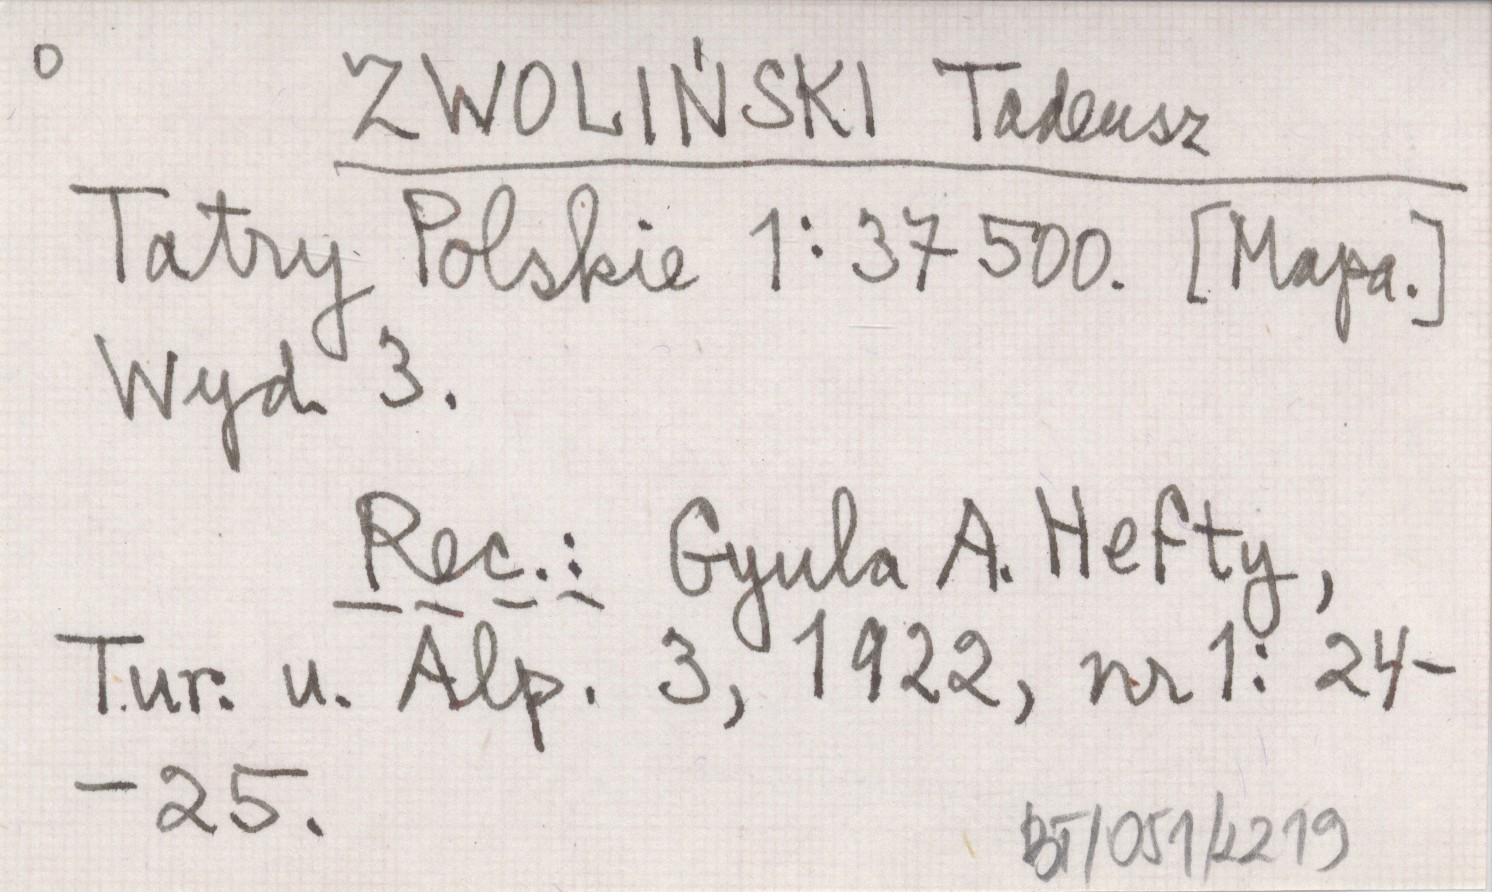 o
ZWOLIŃSKI Tadeusz
Tatry Polskie 1:37500. [Mapa.]
Wyd. 3.
Rec.: Gyula A. Hefty,
Tur. u. Alp. 3, 1922, nr 1: 24-
-25.
BT/051/2219